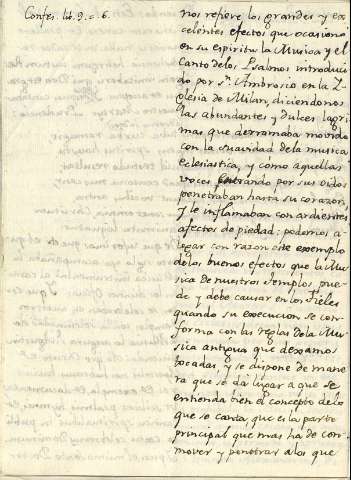 Confes. lib. 9. c. 6.
nos refiere los grandes y ex
celentes efectos que ocasionó
en su espiritu la Musica y el
Canto de los Psalmos introduci
do por Sn. Ambrosio en la I
glesia de Milan, diciendonos
las abundantes y dulces lagri
mas que derramaba movido
con la suavidad de la musica
eclesiastica, y cómo aquellas
voces entrando por sus oidos
penetraban hasta su corazon,
y le inflamaban con ardientes
afectos de piedad: podemos a
legar con razon este exemplo
de los buenos efectos que la Mu
sica de nuestros Templos pue
de y debe causar en los Fieles
quando su execucion se con
forma con las reglas de la Mu
sica antigua que dexamos
tocadas, y se dispone de mane
ra que se dá lugar a que se
entienda bien el concepto de lo
que se canta, que es la parte
principal que mas ha de con
mover y penetrar a los que